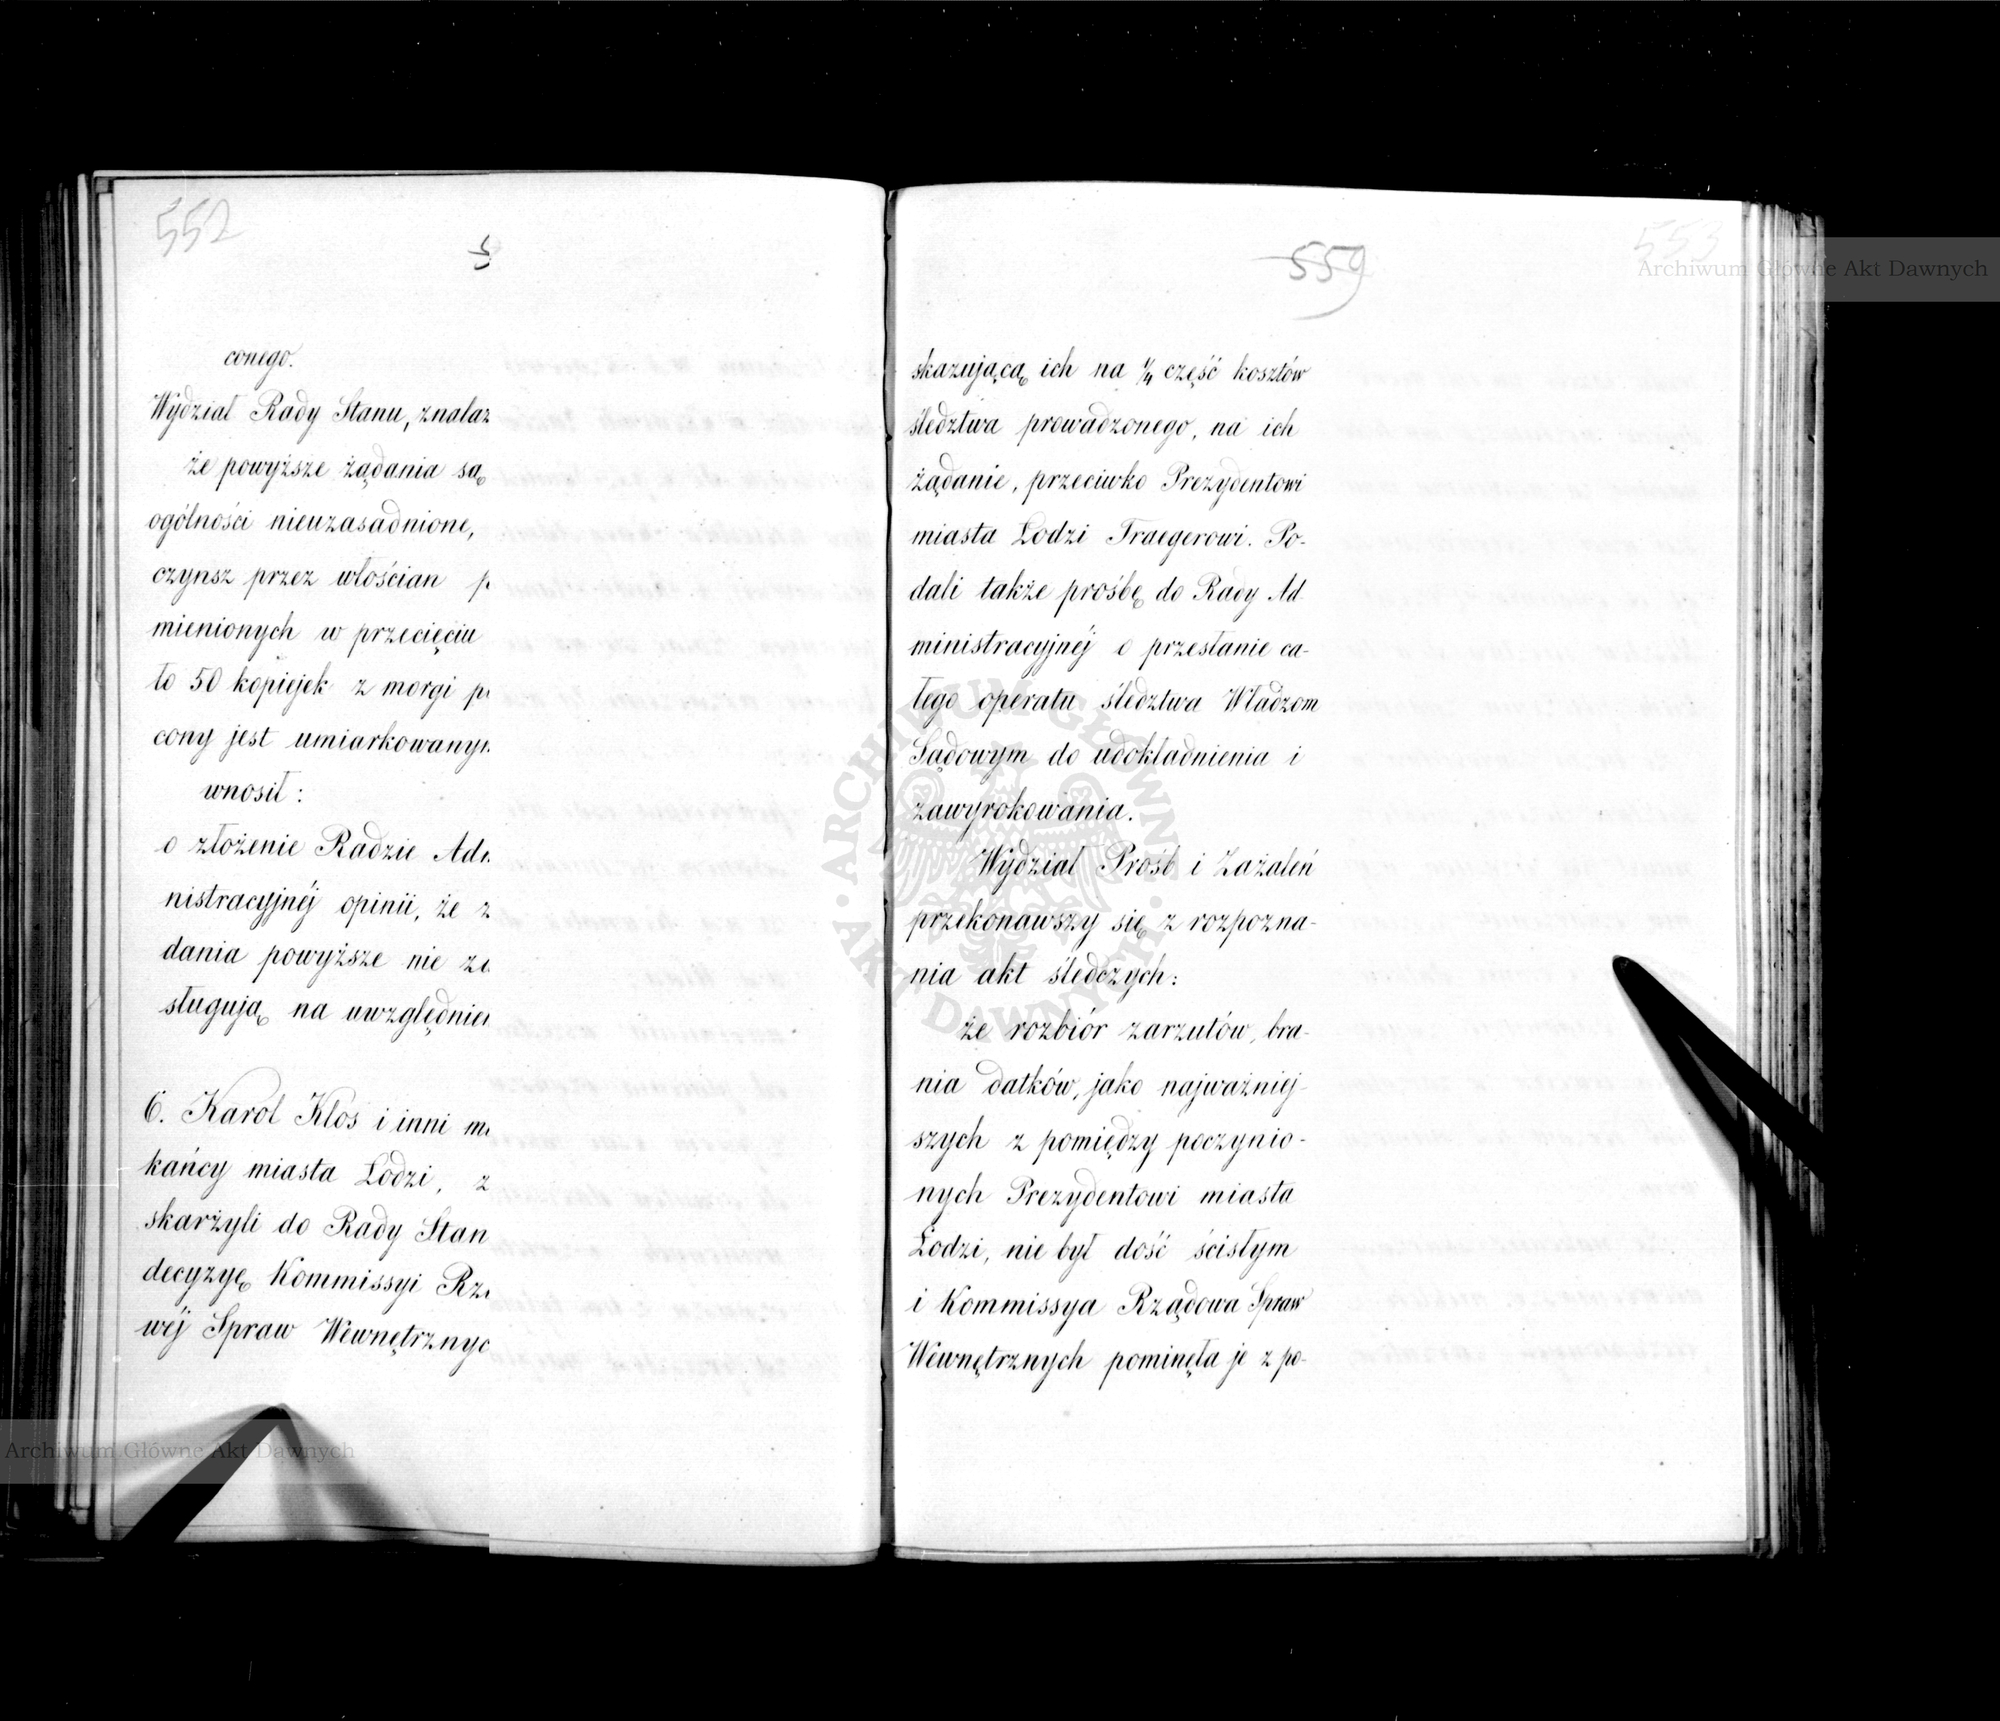 552
conego.
Wydział Rady Stanu, znalaz
że powyższe żądania są
ogólności nieuzasadnione,
czynsz przez włościan
mienionych w przecięciu
ło 50 kopiejek z morgi
cony jest umiarkowany
wnosił:
o złożenie Radzie Ad
nistracyjnéj opinii, że
dania powyższe nie
sługują na uwzględnie
6. Karol Klos i inni
kańcy miasta Łodzi,
skarżyli do Rady Stan
decyzyę Kommissyi Rz
wéj Spraw Wewnętrznyc
559
553
skazującą ich na 1/4 część kosztów
śledztwa prowadzonego, na ich
żądanie, przeciwko Prezydentowi
miasta Łodzi Traegerowi. Po-
dali także prośbę do Rady Ad
ministracyjnéj o przesłanie ca-
łego operatu śledztwa Władzom
Sądowym do udokładnienia i
zawyrokowania.
Wydział Prośb i Zażaleń
przekonawszy się z rozpozna-
nia akt śledczych:
że rozbiór zarzutów, bra-
nia datków, jako najważniej-
szych z pomiędzy poczynio-
nych Prezydentowi miasta
Łodzi, nie był dość ścisłym
i Kommissya Rządowa Spraw
Wewnętrznych pominęła je z po-
Archiwum Główne Akt Dawnych
ARCHIWUM GŁÓWNE AKT DAWNYCH
Archiwum Główne Akt Dawnych